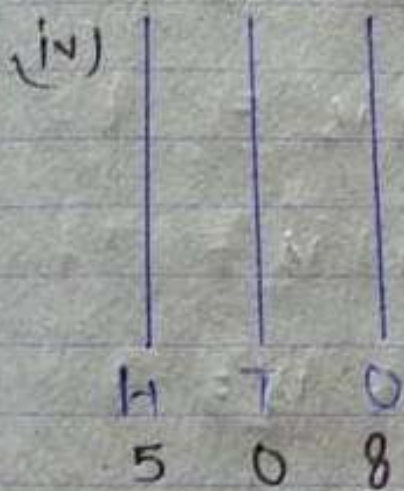 (iv)
H T O
5 0 8